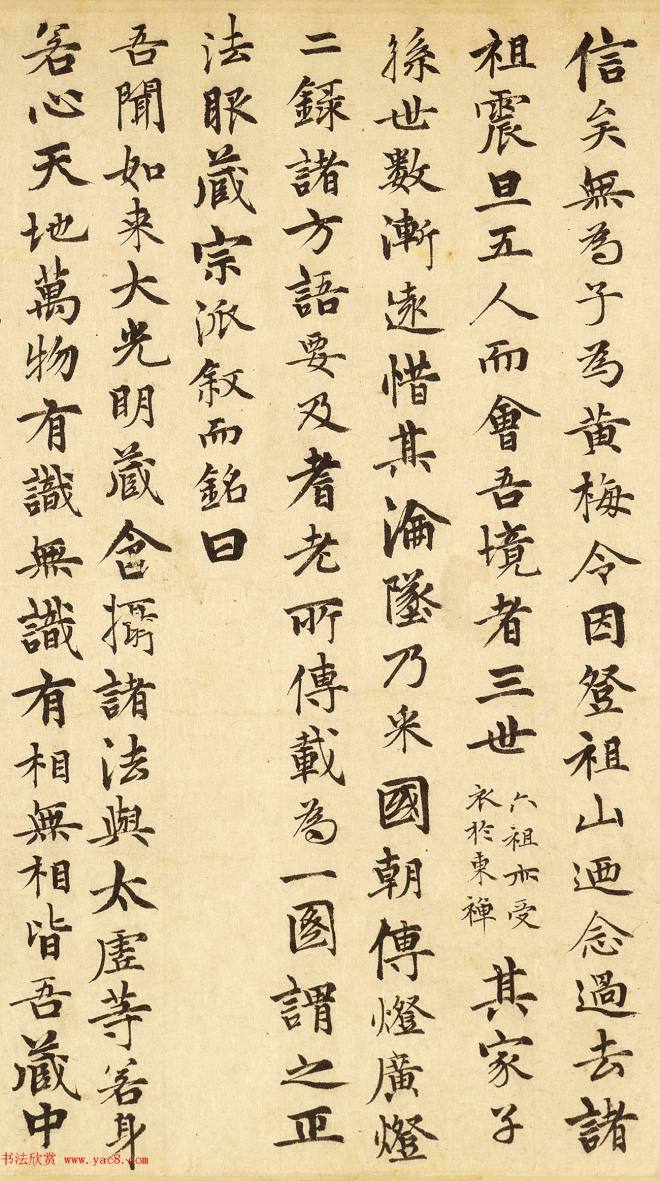 信矣無為子為黄梅令因登祖山迺念過去諸
祖震旦五人而會吾境者三世六祖亦受衣於東禅其家子
孫世数漸遠惜其淪墜乃采國朝傳燈廣燈
二録諸方語要及耆老所傳載為一圖謂之正
法眼蔵宗派叙而銘曰
吾聞如来大光明蔵含攝諸法與太虚等若身
若心天地萬物有識無識有相無相皆吾蔵中
书法欣赏 www.yac8.com